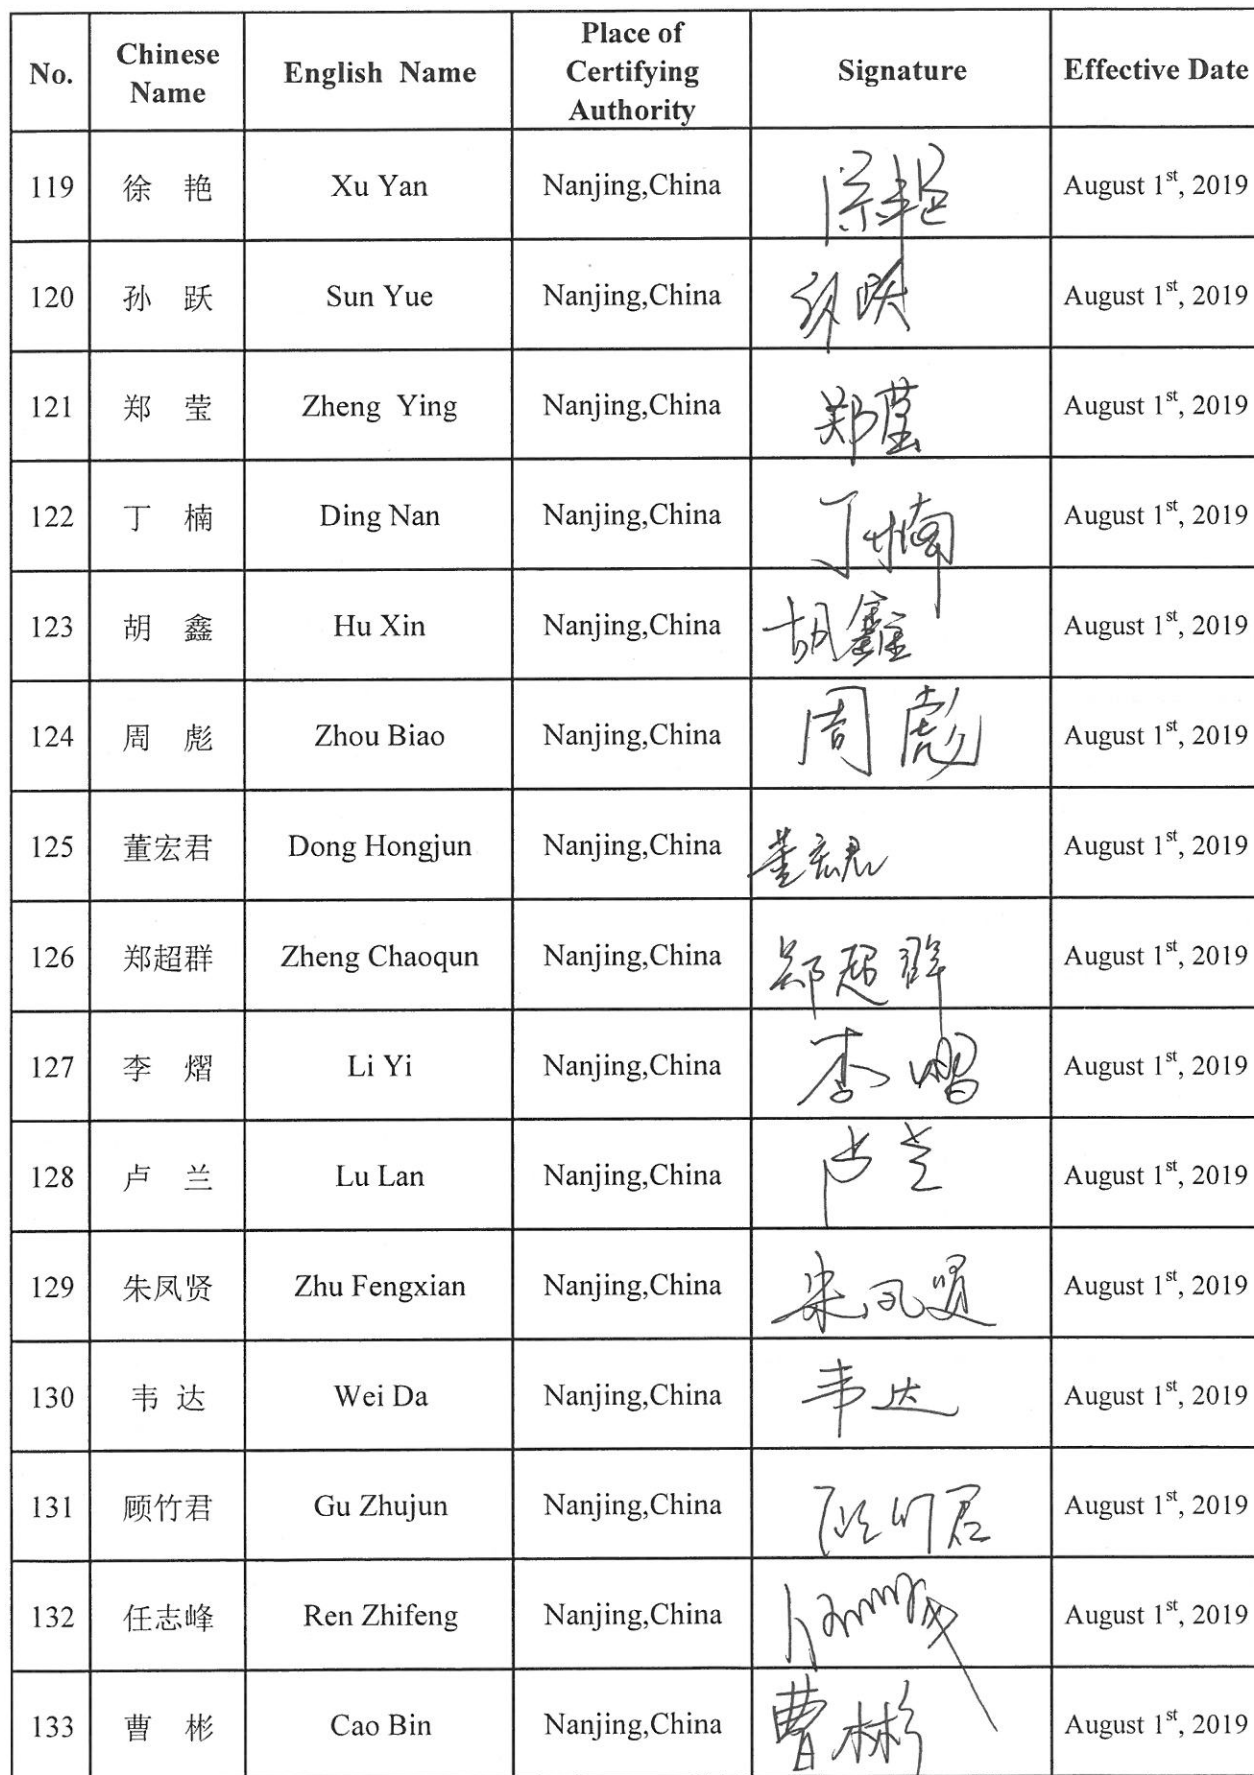 No. Chinese Name English Name Place of Certifying Authority Signature Effective Date
119 徐 艳 Xu Yan Nanjing,China 徐艳 August 1st, 2019
120 孙 跃 Sun Yue Nanjing,China 孙跃 August 1st, 2019
121 郑 莹 Zheng Ying Nanjing,China 郑莹 August 1st, 2019
122 丁 楠 Ding Nan Nanjing,China 丁楠 August 1st, 2019
123 胡 鑫 Hu Xin Nanjing,China 胡鑫 August 1st, 2019
124 周 彪 Zhou Biao Nanjing,China 周彪 August 1st, 2019
125 董宏君 Dong Hongjun Nanjing,China 董宏君 August 1st, 2019
126 郑超群 Zheng Chaoqun Nanjing,China 郑超群 August 1st, 2019
127 李 熠 Li Yi Nanjing,China 李熠 August 1st, 2019
128 卢 兰 Lu Lan Nanjing,China 卢兰 August 1st, 2019
129 朱凤贤 Zhu Fengxian Nanjing,China 朱凤贤 August 1st, 2019
130 韦 达 Wei Da Nanjing,China 韦达 August 1st, 2019
131 顾竹君 Gu Zhujun Nanjing,China 顾竹君 August 1st, 2019
132 任志峰 Ren Zhifeng Nanjing,China August 1st, 2019
133 曹 彬 Cao Bin Nanjing,China 曹彬 August 1st, 2019